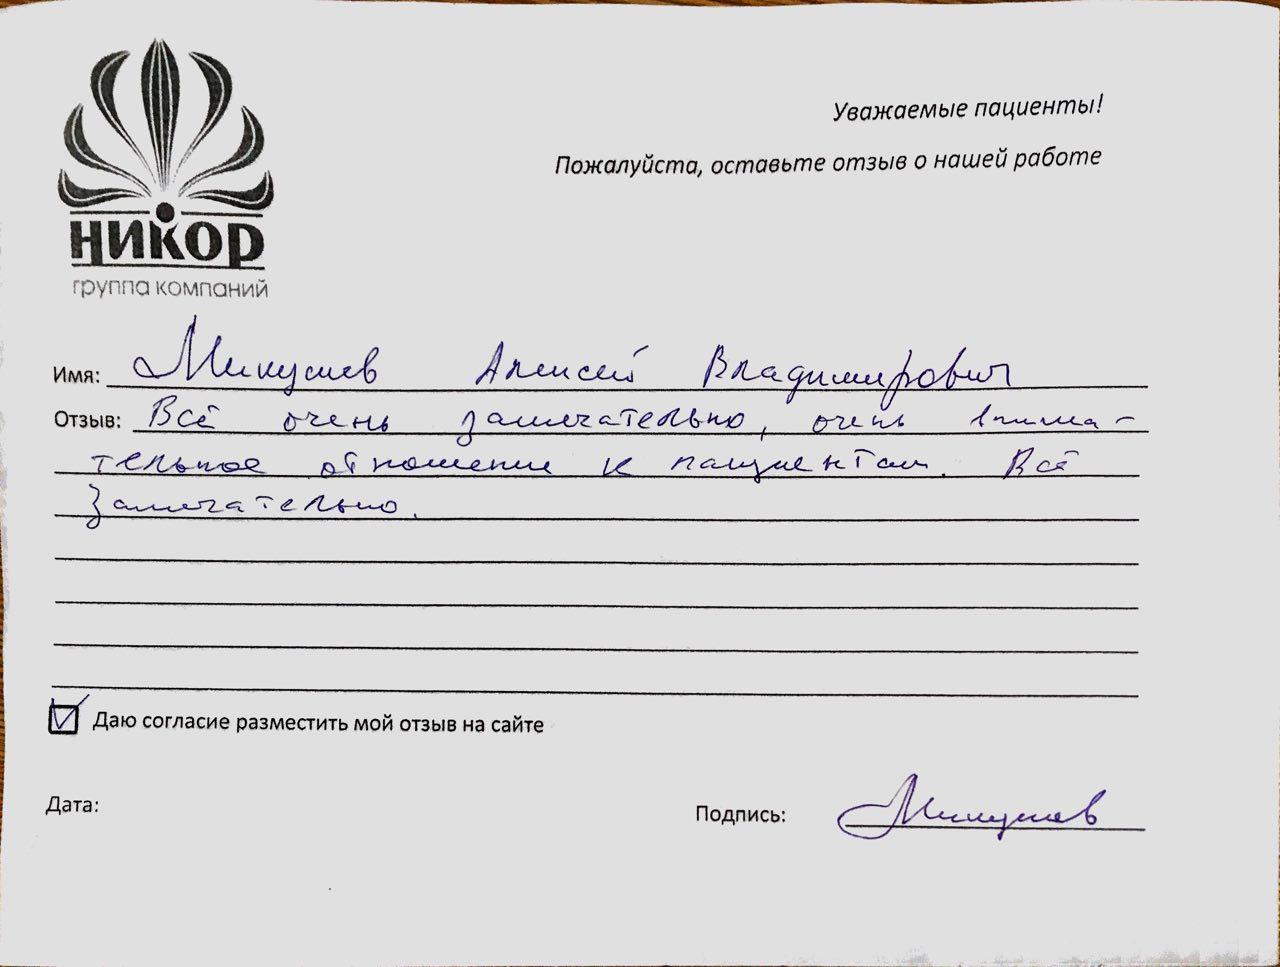 НИКОР
группа компаний
Уважаемые пациенты!
Пожалуйста, оставьте отзыв о нашей работе
Имя: Алексей Владимирович
Отзыв: Всё очень замечательно, очень внима-
тельное отношение к пациентам. Всё
замечательно.
Даю согласие разместить мой отзыв на сайте
Дата:
Подпись: